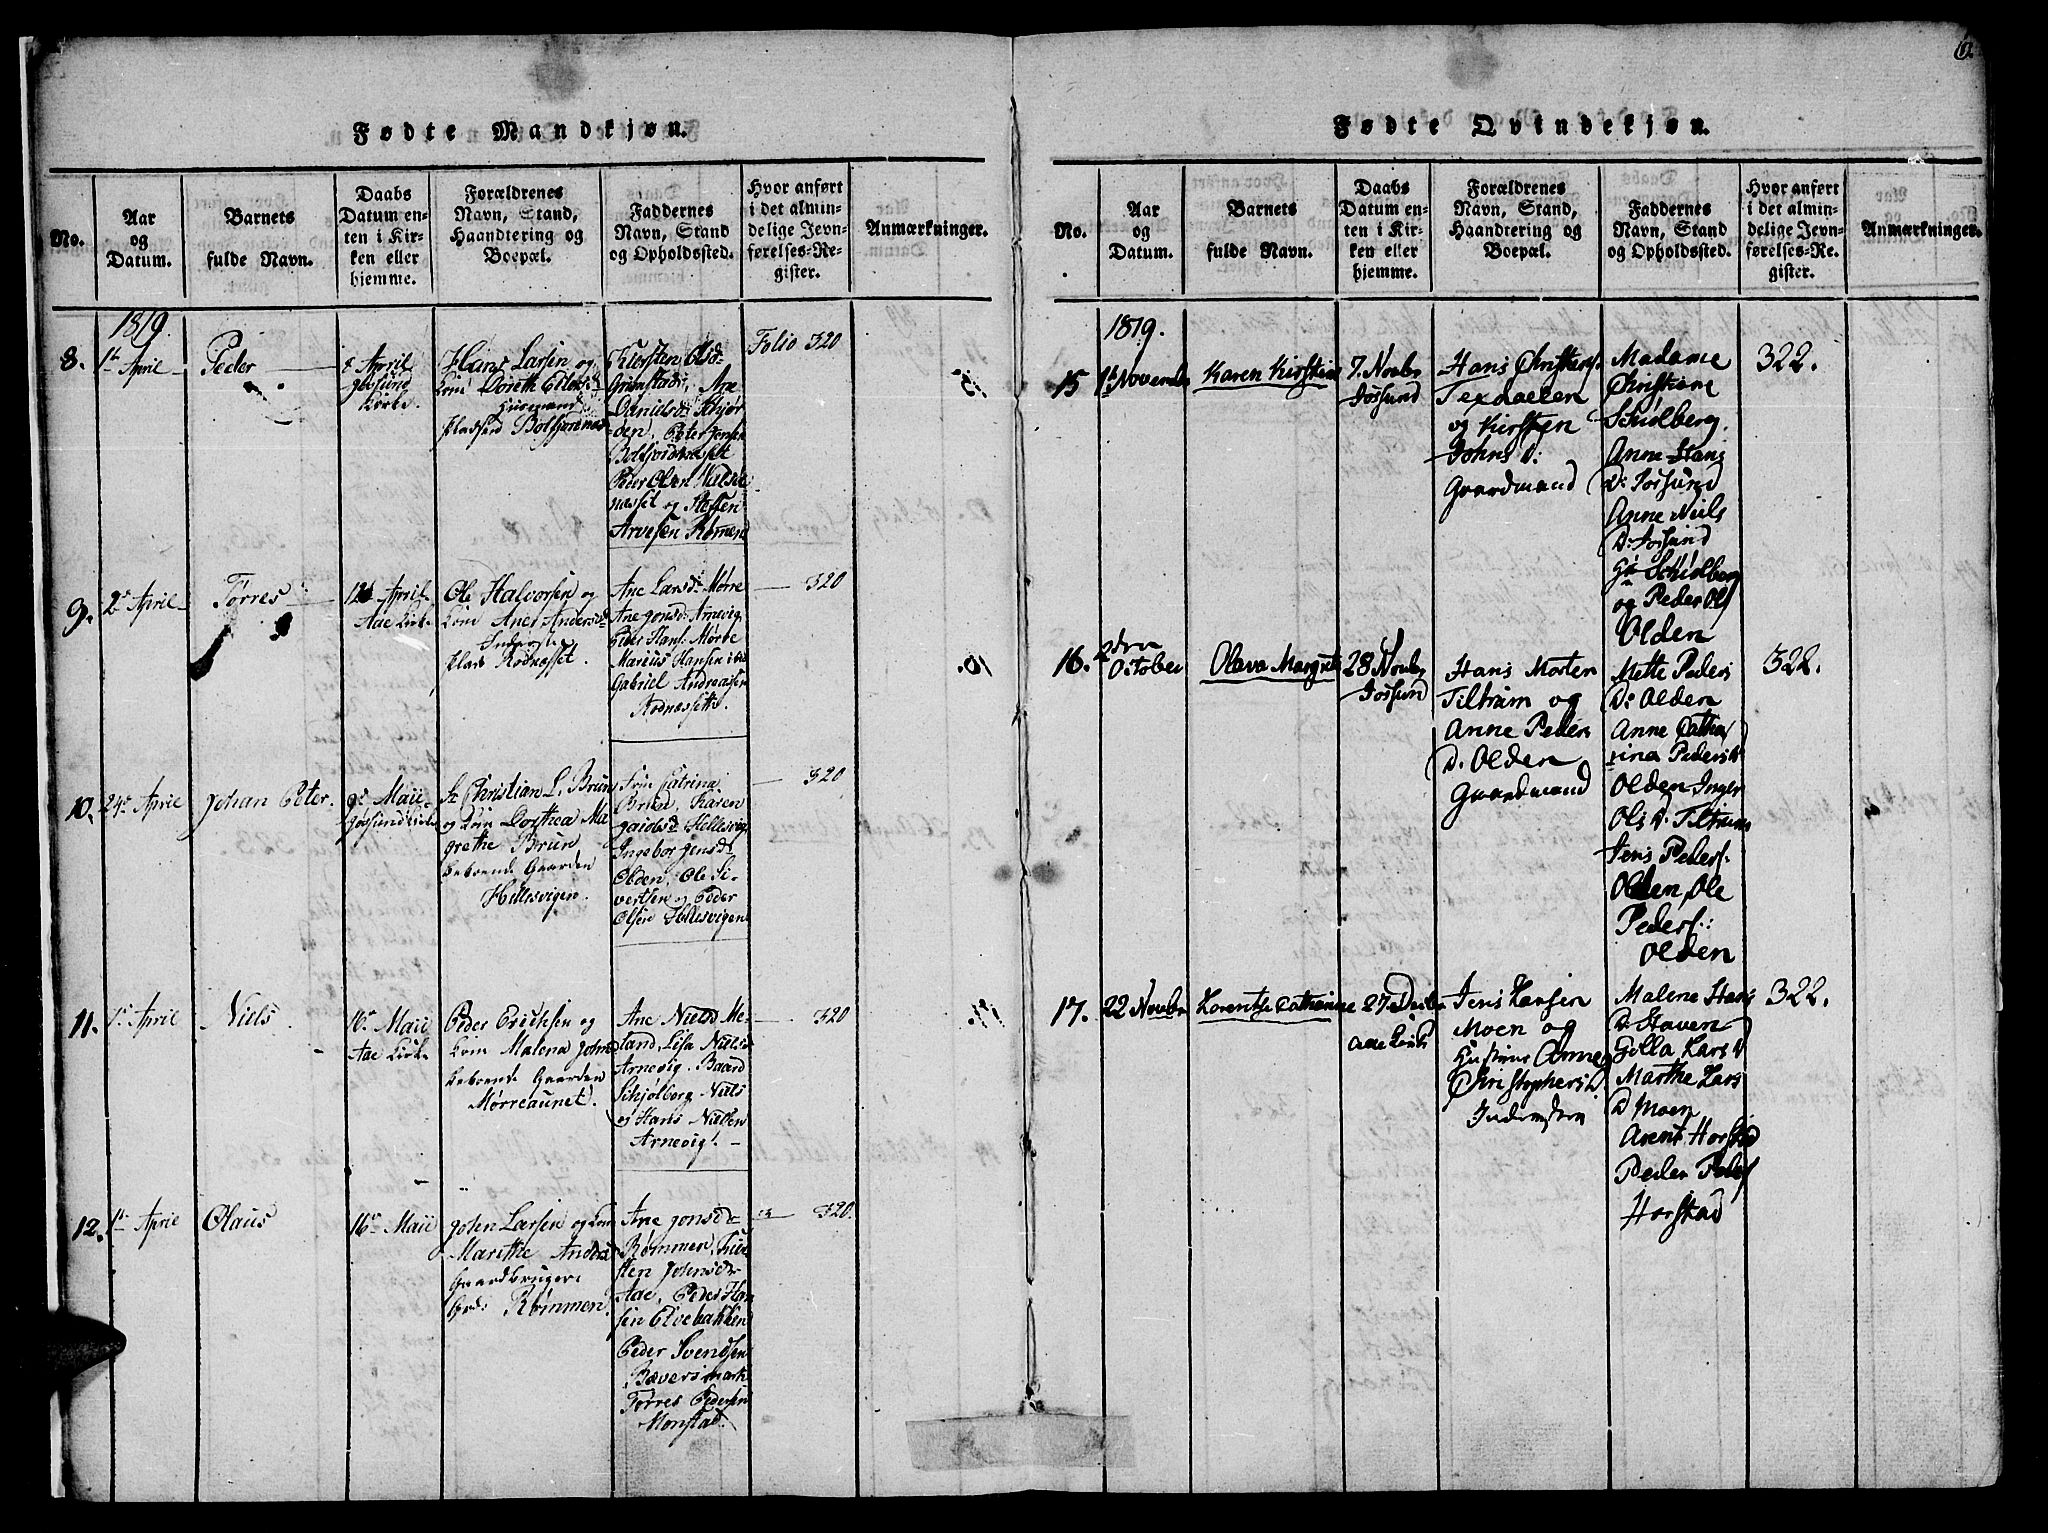 6.
Fødte Mandkjøn.
No.
Aar
og
Datum.
Barnets
fulde Navn.
Daabs
Datum en-
ten i Kir-
ken eller
hjemme.
Forældrenes
Navn, Stand,
Haandtering og
Boepæl.
Faddernes
Navn, Stand
og Opholdssted.
Hvor anført
i det almin-
delige Jevn-
førelses-Re-
gister.
Anmærkninger.
1819.
8.
1te April
Peder
8 April
Jøssund
Kirke.
Hans Larsen og
Kone Doreth
Huusmand
Pladsen
Kirsten Olsd
Grimstad, Ane
Danielsd: Skjør-
den, Peter Jensen
Peder Olsen
næsset og Steffen
Arnesen Rømen
Folio 320
9.
2de April
Tørres
12te April
Aae Kirke
Ole Halvorsen og
Kone Ane Andersd
Inderste
Plads Rødnæsset.
Ane Larsd: Mørre
Ane Jonsd: Arnevig
Peder Hans: Mørre
Marius Hansen ibd
Gabriel Andreasen
Rødnæssette.
320
10.
24de April
Johan Peter.
9de Maii
Jøssund Kirke
Sr Christian L. Brun
og Kone Dorthea Ma
grethe Brun
beboende Gaarden
Hellesvigen.
Catrina
Brun, Karen
Jacobsd: Hellesvig
Ingeborg Jensd:
Olden, Ole Si-
vertsen og Peder
Olsen Hellesvigen
320
11.
April
Niels.
16de Maii
Aae Kirke
Peder Erichsen og
Kone Malena Johnsd
beboende Gaarden
Mørreaunet.
Ane Nielsd Me-
land, Lisa Nielsd
Arnevig. Baard
Schjølberg. Niels
og Hans Nielsen
Arnevig!
320
12.
1te April
Olaus
16de Maii
John Larsen og Kone
Marithe Andersd
Gaardbruger
Rømmen.
Ane Jonsd:
Rømmen, Kir-
sten Johnsd:
Aae, Peder Han-
sen Elvebakken
Peder Svendsen
Bæversmark
Tørres Pedersen
Monstad.
320.
Fødte Qvindekjøn.
No.
Aar
og
Datum.
Barnets
fulde Navn.
Daabs
Datum en-
ten i Kir-
ken eller
hjemme.
Forældrenes
Navn, Stand,
Haandtering og
Boepæl.
Faddernes
Navn, Stand
og Opholdssted.
Hvor anført
i det almin-
delige Jevn-
førelses-Re-
gister.
Anmærkninger.
1819.
15
1te November
Karen Kirstine
7. Novbr
Jøssund
Hans Christens:
Texdaelen
og Kirsten
Johns D:
Gaardmand
Madame
Christiane
Schiølberg.
Anne Hans
D: Jøssund
Anne Niels
D: Jøssund
Schiølberg
og Peder Ols
Olden
322.
16.
2den
October
Olava Margrete
28 Novbr
Jøssund
Hans Morten
Tiltrum og
Anne Peders
D: Olden
Gaardmand
Mette Peders
D: Olden
Anne Catha
rina Peders D
Olden Inger
Ols D. Tiltrum
Jens Peders:
Olden, Ole
Peders:
Olden
322.
17.
22 Novbr
Lorentse Cathrine
27 Decbr
Aae Kirke
Jens Larsen
Moen og
Hustrue Anne
Christophers D
Inderster
Malene Hans
D: Haven
Golla Lars D
Marthe Lars
D Moen
Arent Horstad
Peder Peders
Horstad
322.